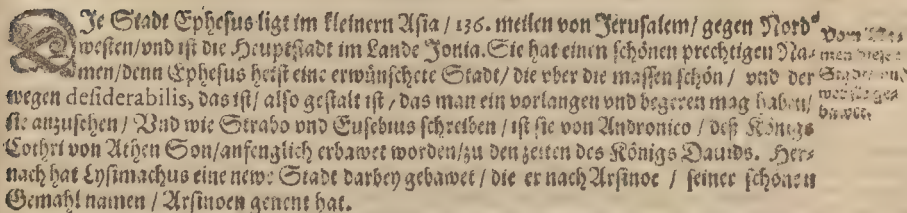 DJe Stadt Ephesus ligt im kleinern Asia / 136. meilen von Jerusalem / gegen Nord
westen / vnd ist die Heuptstadt im Lande Jonia. Sie hat einen schönen prechtigen Na-
men / denn Ephesus heist eine erwünschete Stadt / die vber die massen schön / vnd der
wegen desiderabilis, das ist / also gestalt ist / das man ein vorlangen vnd begeren mag haben /
sie anzusehen / Vnd wie Strabo vnd Eusebius schreiben / ist sie von Andronico / deß Königs
Cothri von Athen Son / anfenglich erbawet worden / zu den zeiten des Königs Dauids. Her-
nach hat Lysimachus eine newe Stadt darbey gebawet / die er nach Arsinoe / seiner schönen
Gemahl namen / Arsinoen genent hat.
Vom Na-
men dieser
Stadt / vnd
wer sie ge
bawet.